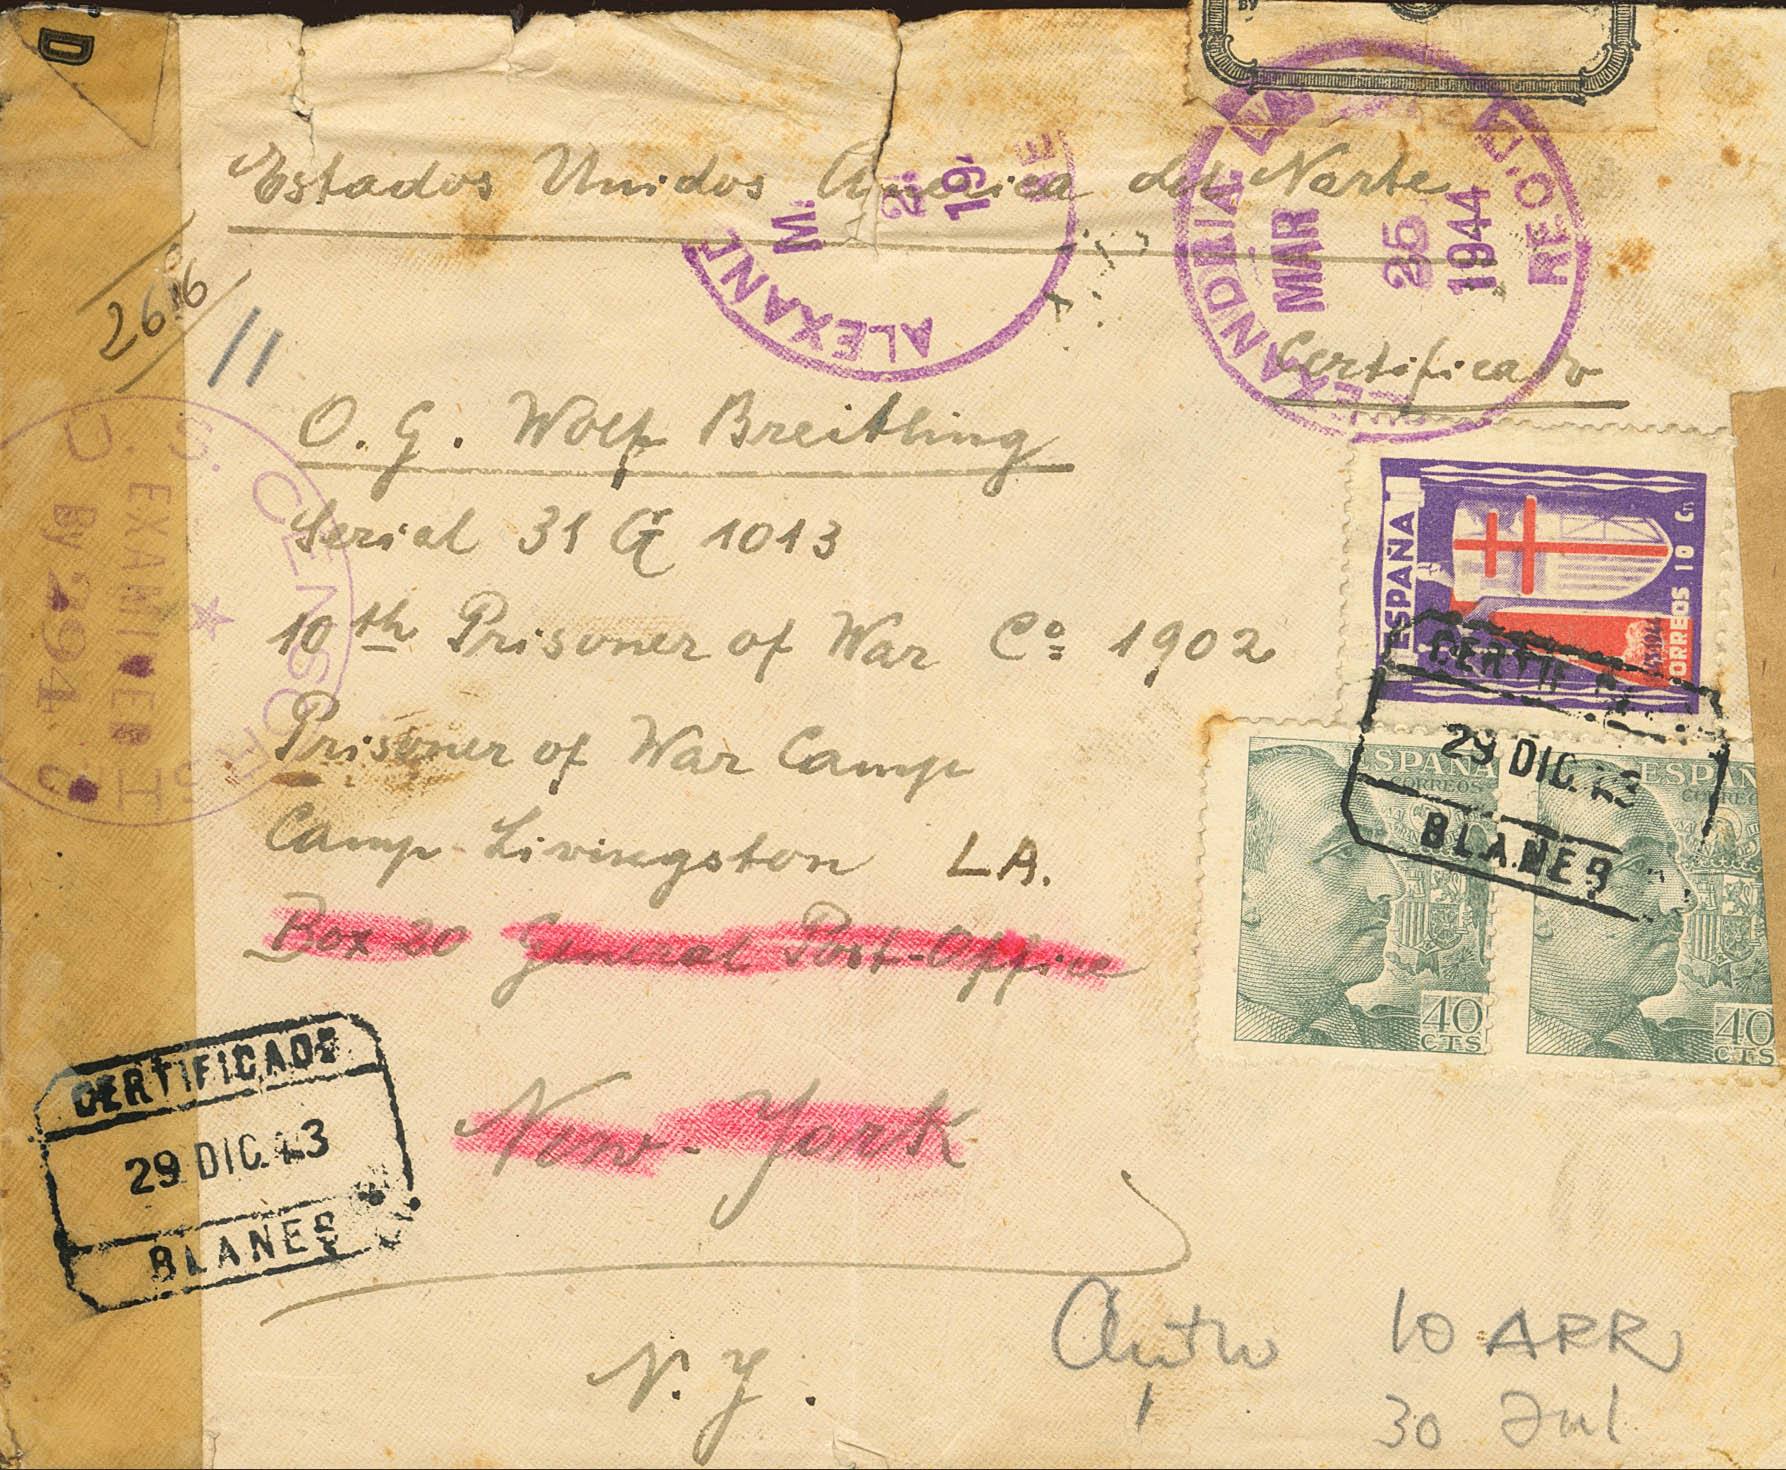 D
BY
Estados Unidos America del Norte
ALEXANDRIA, LA.
MAR
25
1944
REG. DIV.
ALEXAN
M.
2
19
RE
2616
11
Certificado
O. G. Wolf Breitling
Serial 31 G 1013
10th Prisoner of War Co 1902
Prisoner of War Camp
Camp Livingston LA.
Box 20 General Post-Office
New-York
N.Y.
U.S. CENSORSHIP
EXAMINED
By 294
ESPAÑA
CORREOS 10 Cts
CERTIFICADO
29 DIC. 43
BLANES
ESPAÑA
CORREOS
40
CTS
ESPAÑ
CORREO
40
CTS
CERTIFICADO
29 DIC. 43
BLANES
10 ARR
30 Jul